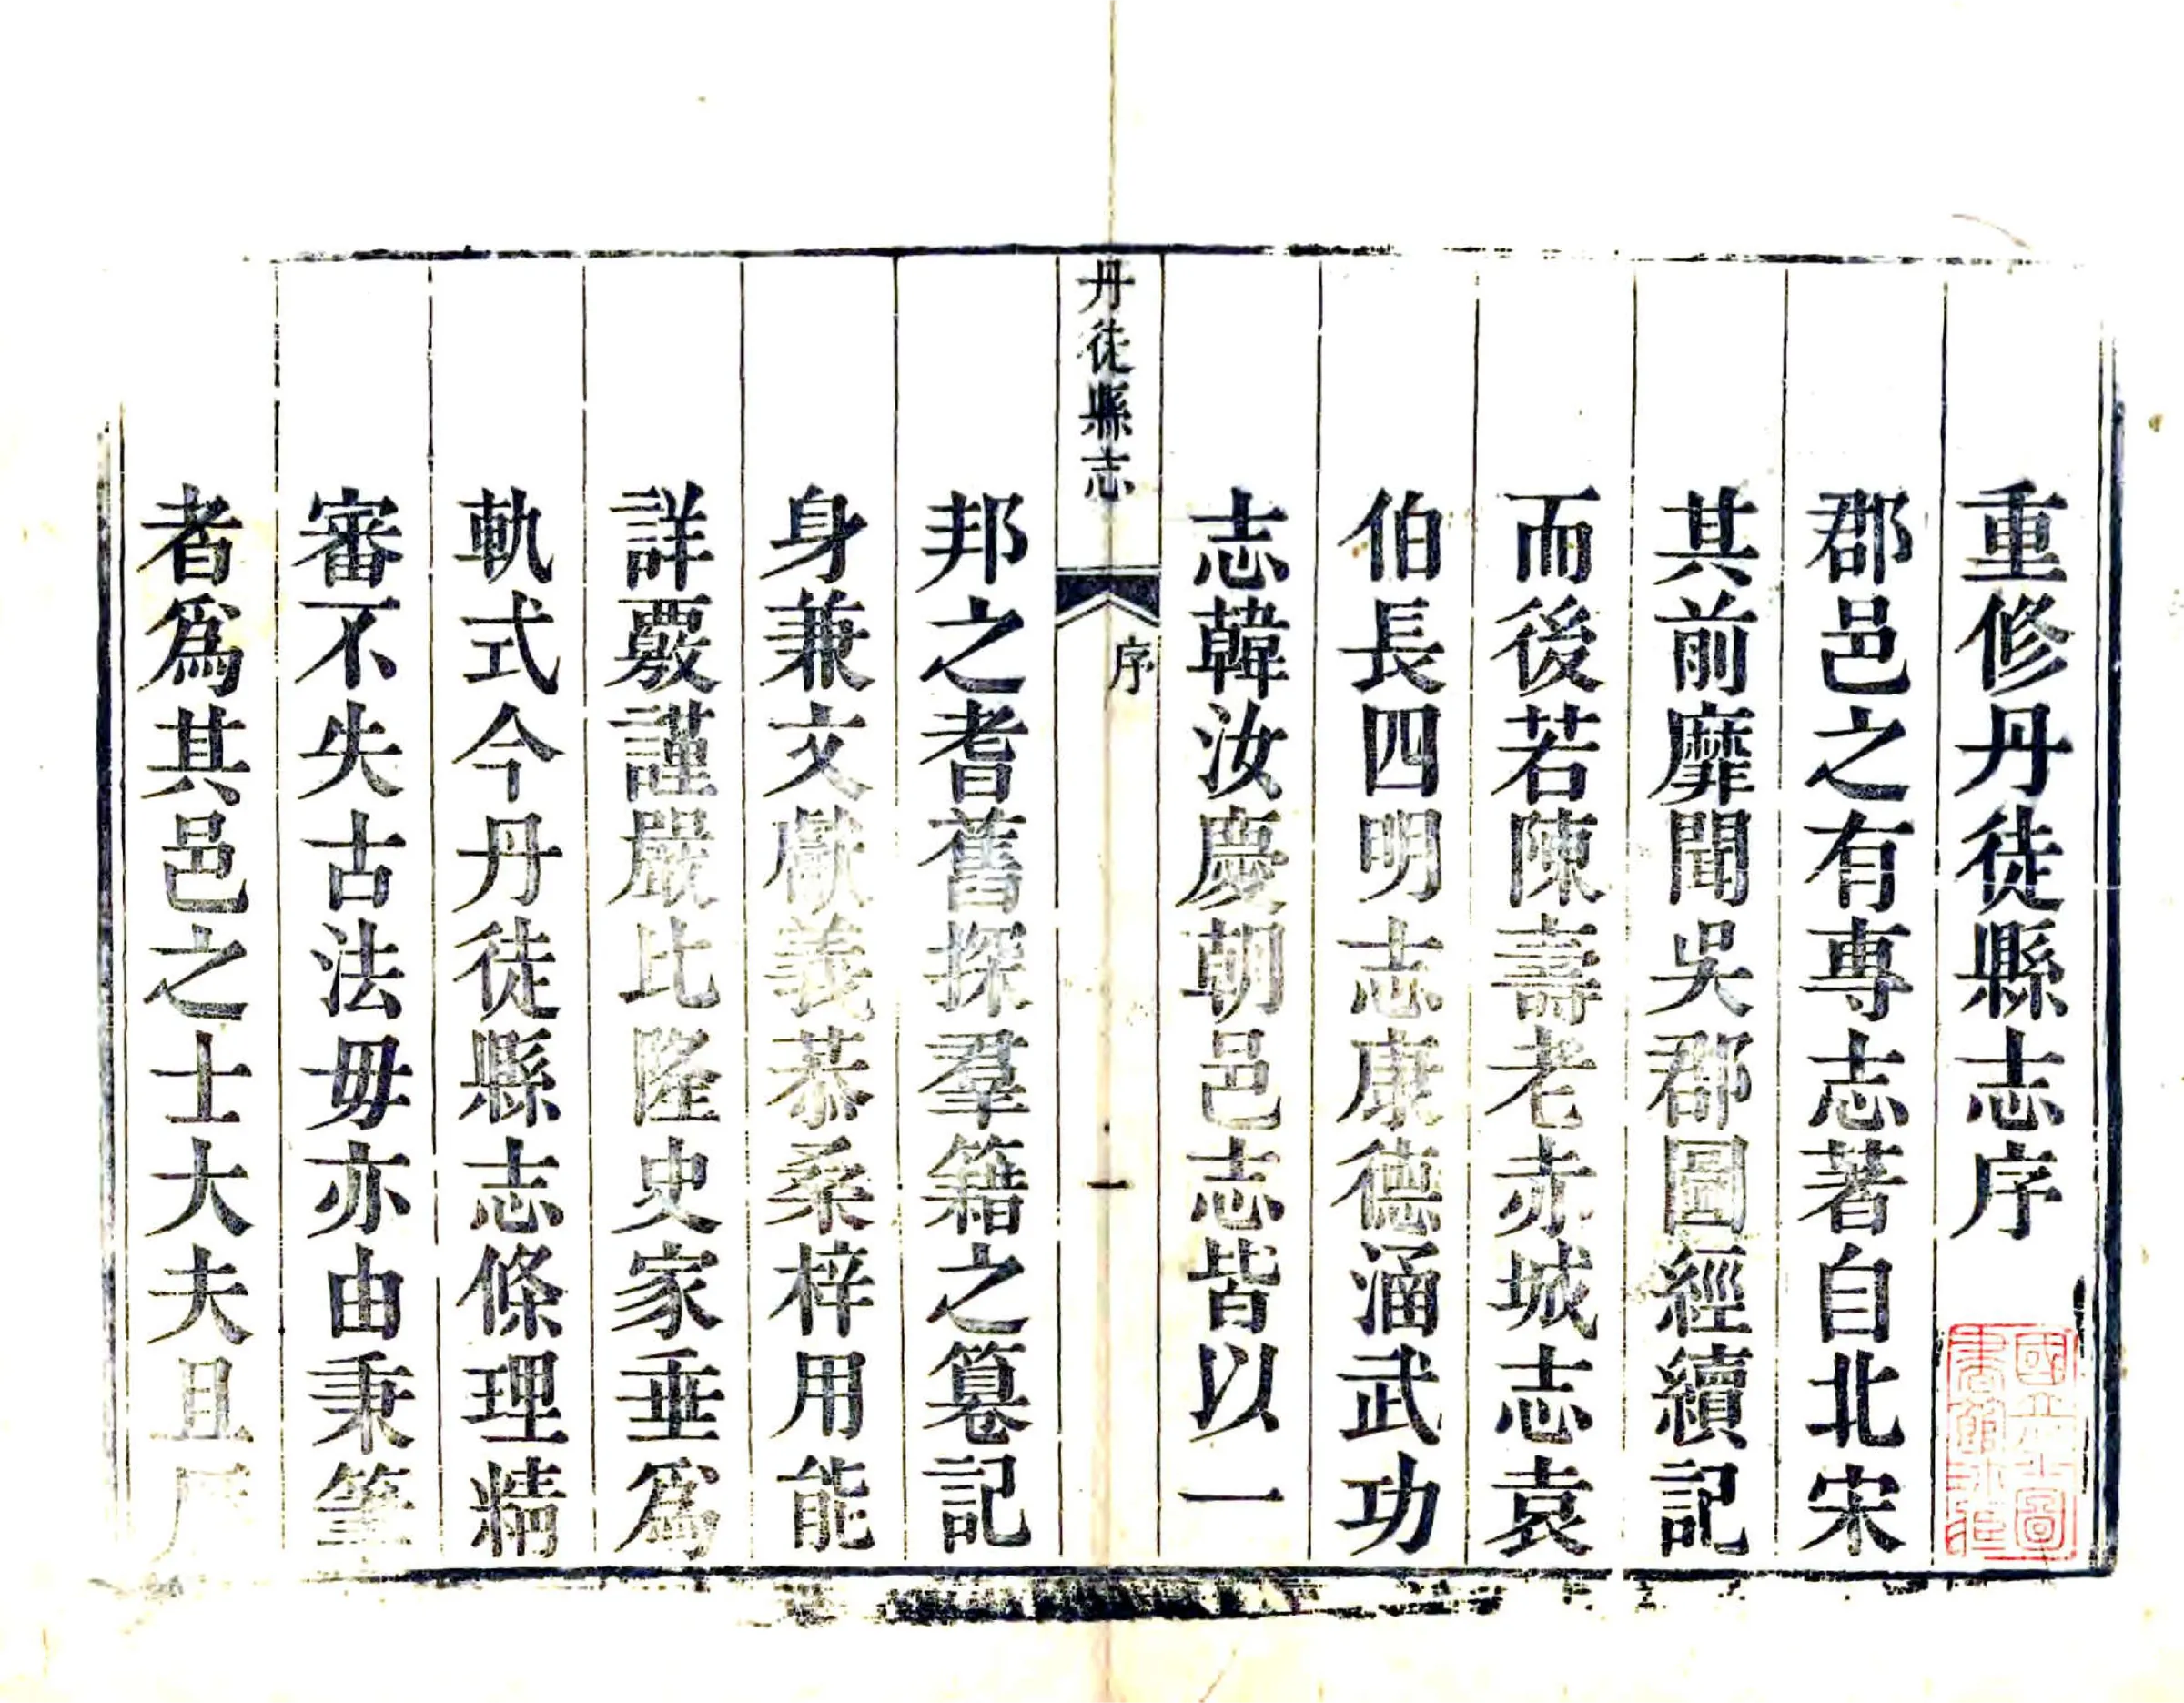 重修丹徒縣志序
郡邑之有專志著自北宋
其前靡聞吳郡圖經續記
而後若陳壽老赤城志袁
伯長四明志康德涵武功
志韓汝慶朝邑志皆以一
丹徒縣志
序
一
邦之耆舊探羣籍之篹記
身兼文獻義恭桑梓用能
詳覈謹嚴比隆史家垂爲
軌式今丹徒縣志條理精
審不失古法毋亦由秉筆
者爲其邑之士大夫且
國立圖
書館